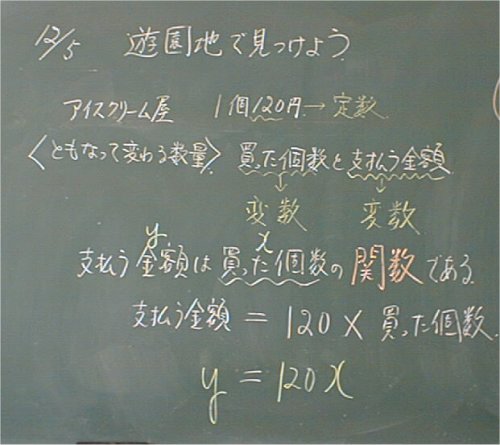 12/5 遊園地で見つけよう
アイスクリーム屋 1個120円→定数
〈ともなって変わる数量〉 買った個数と支払う金額
↓ ↓
変数 変数
y x
支払う金額は買った個数の関数である
支払う金額 = 120 × 買った個数
y = 120x